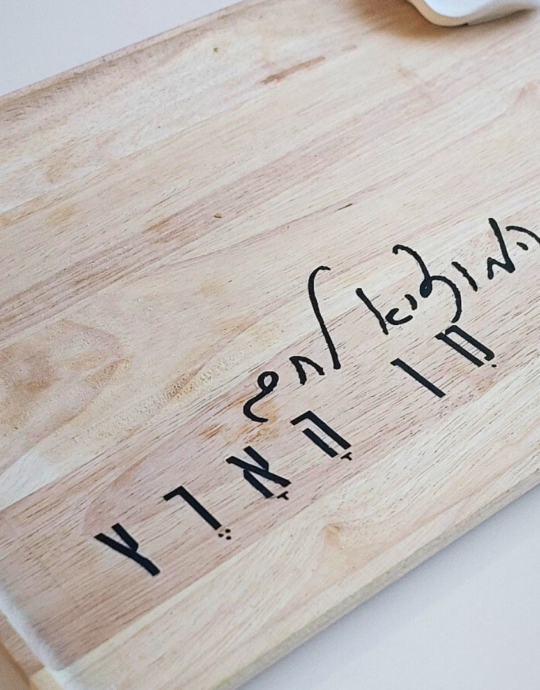 המוציא לחם
מִן הָאָרֶץ